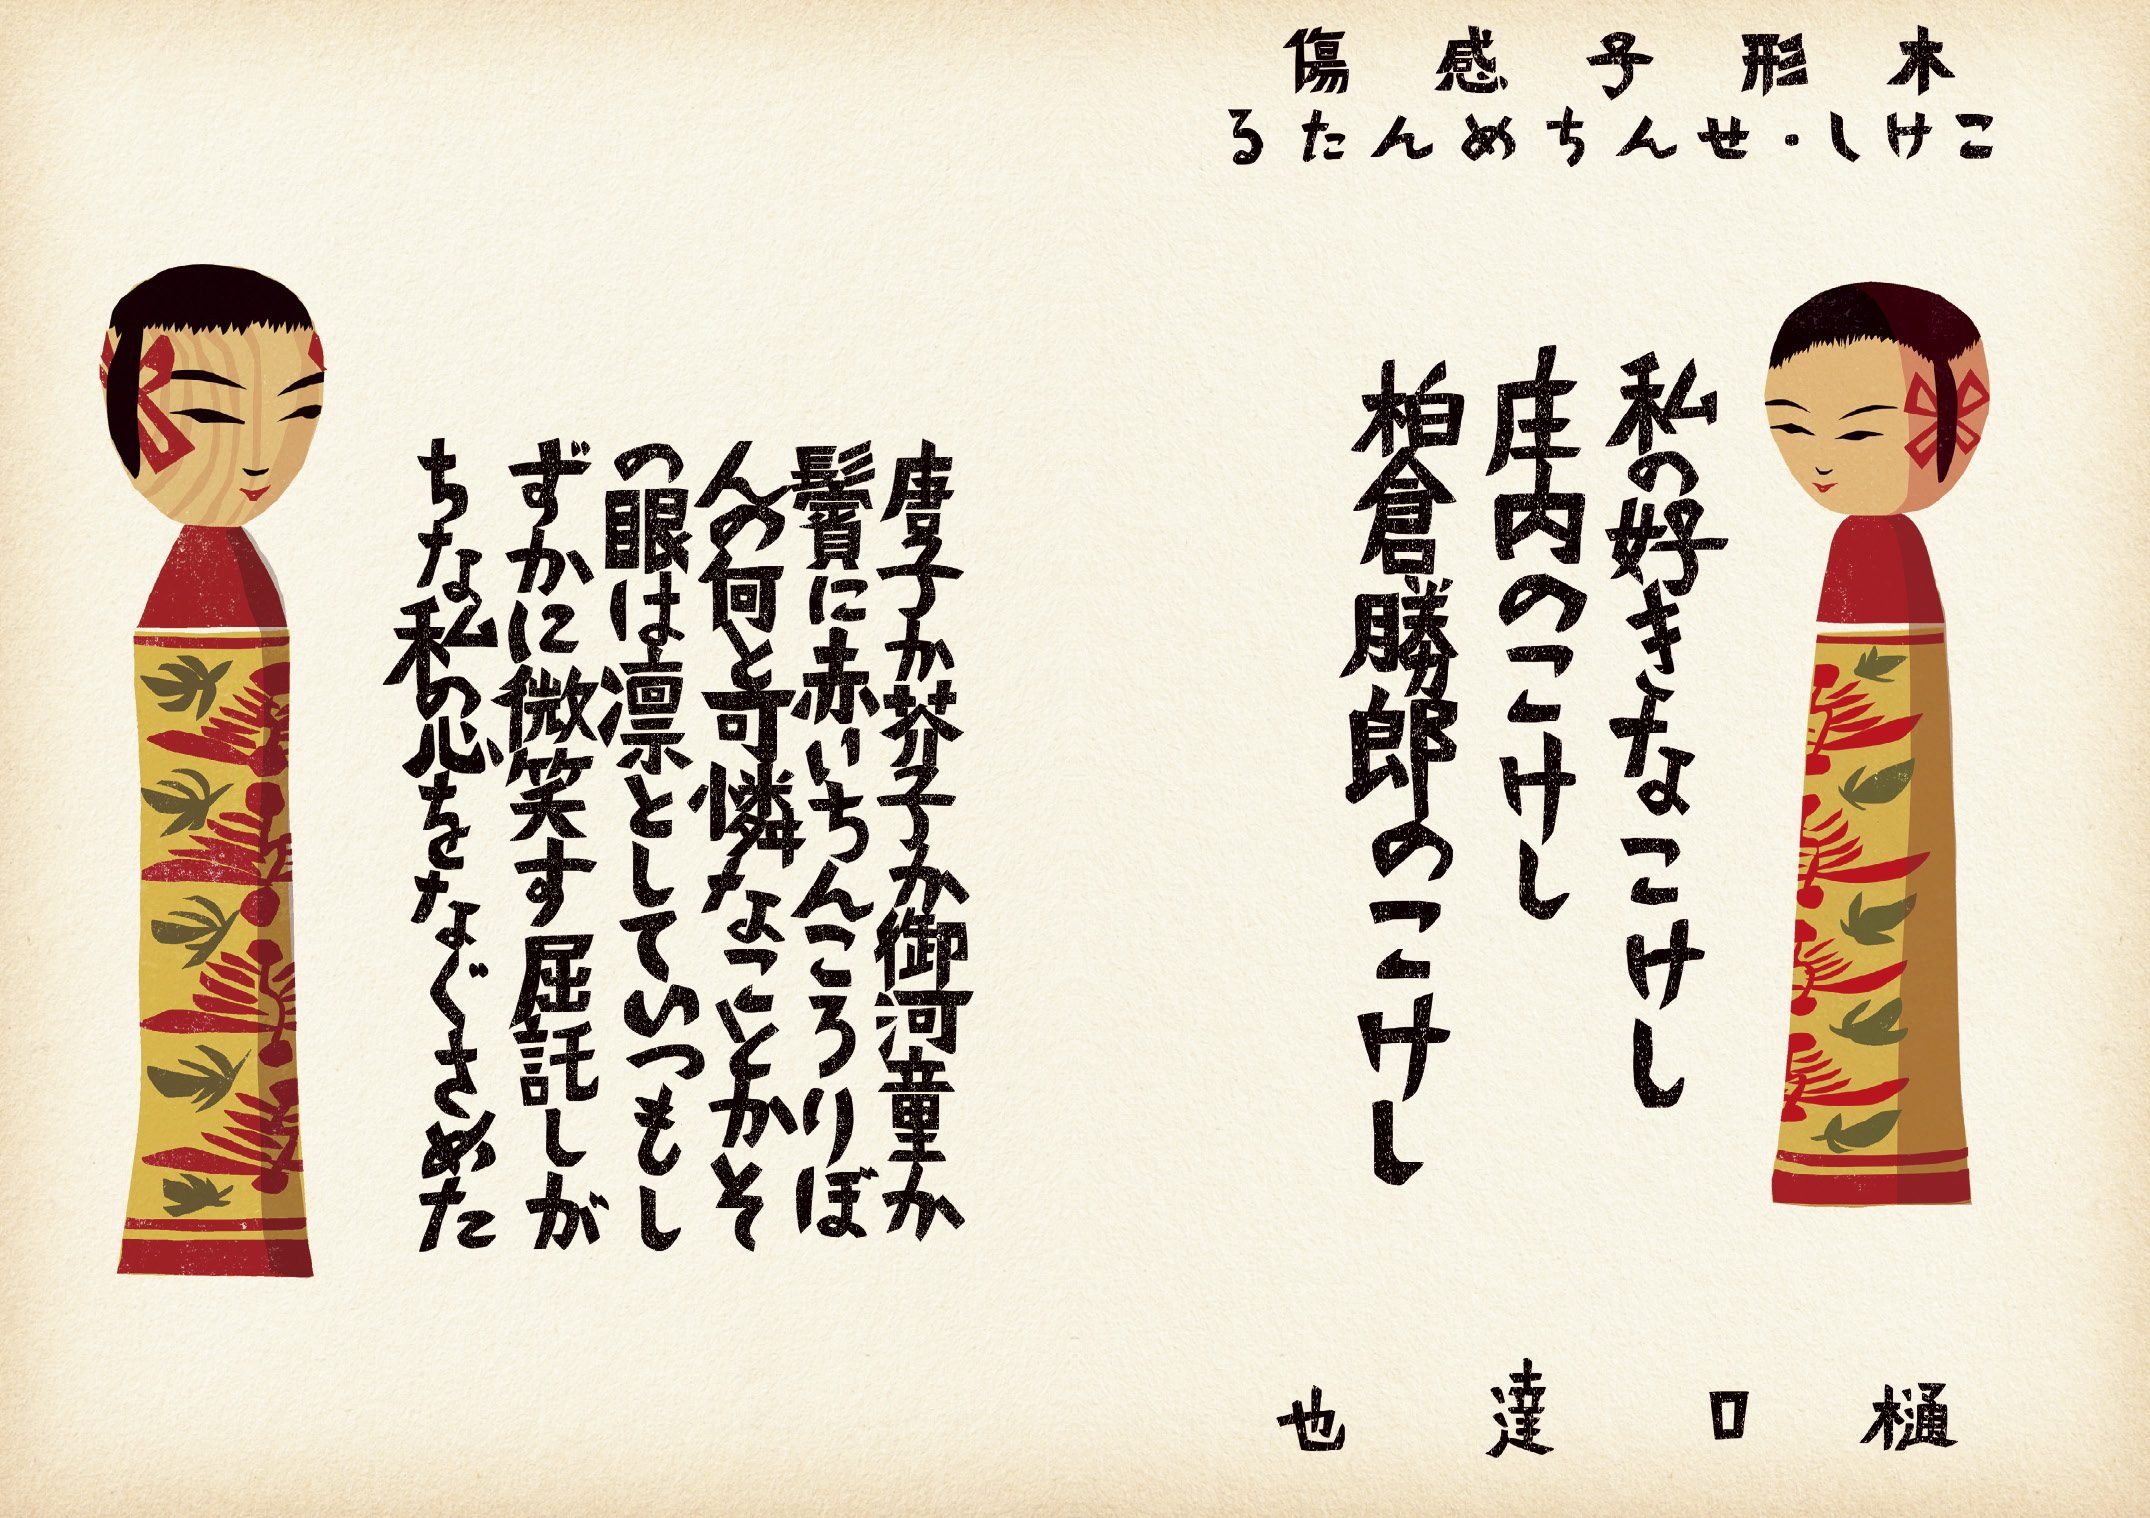 木形子感傷
こけし・せんちめんたる
私の好きなこけし
庄内のこけし
柏倉勝郎のこけし
樋口達也
唐子か芥子か御河童か
鬢に赤いちんころりぼ
んの何と可憐なことかそ
の眼は凛としていつもし
ずかに微笑す屈託しが
ちな私の心をなぐさめた